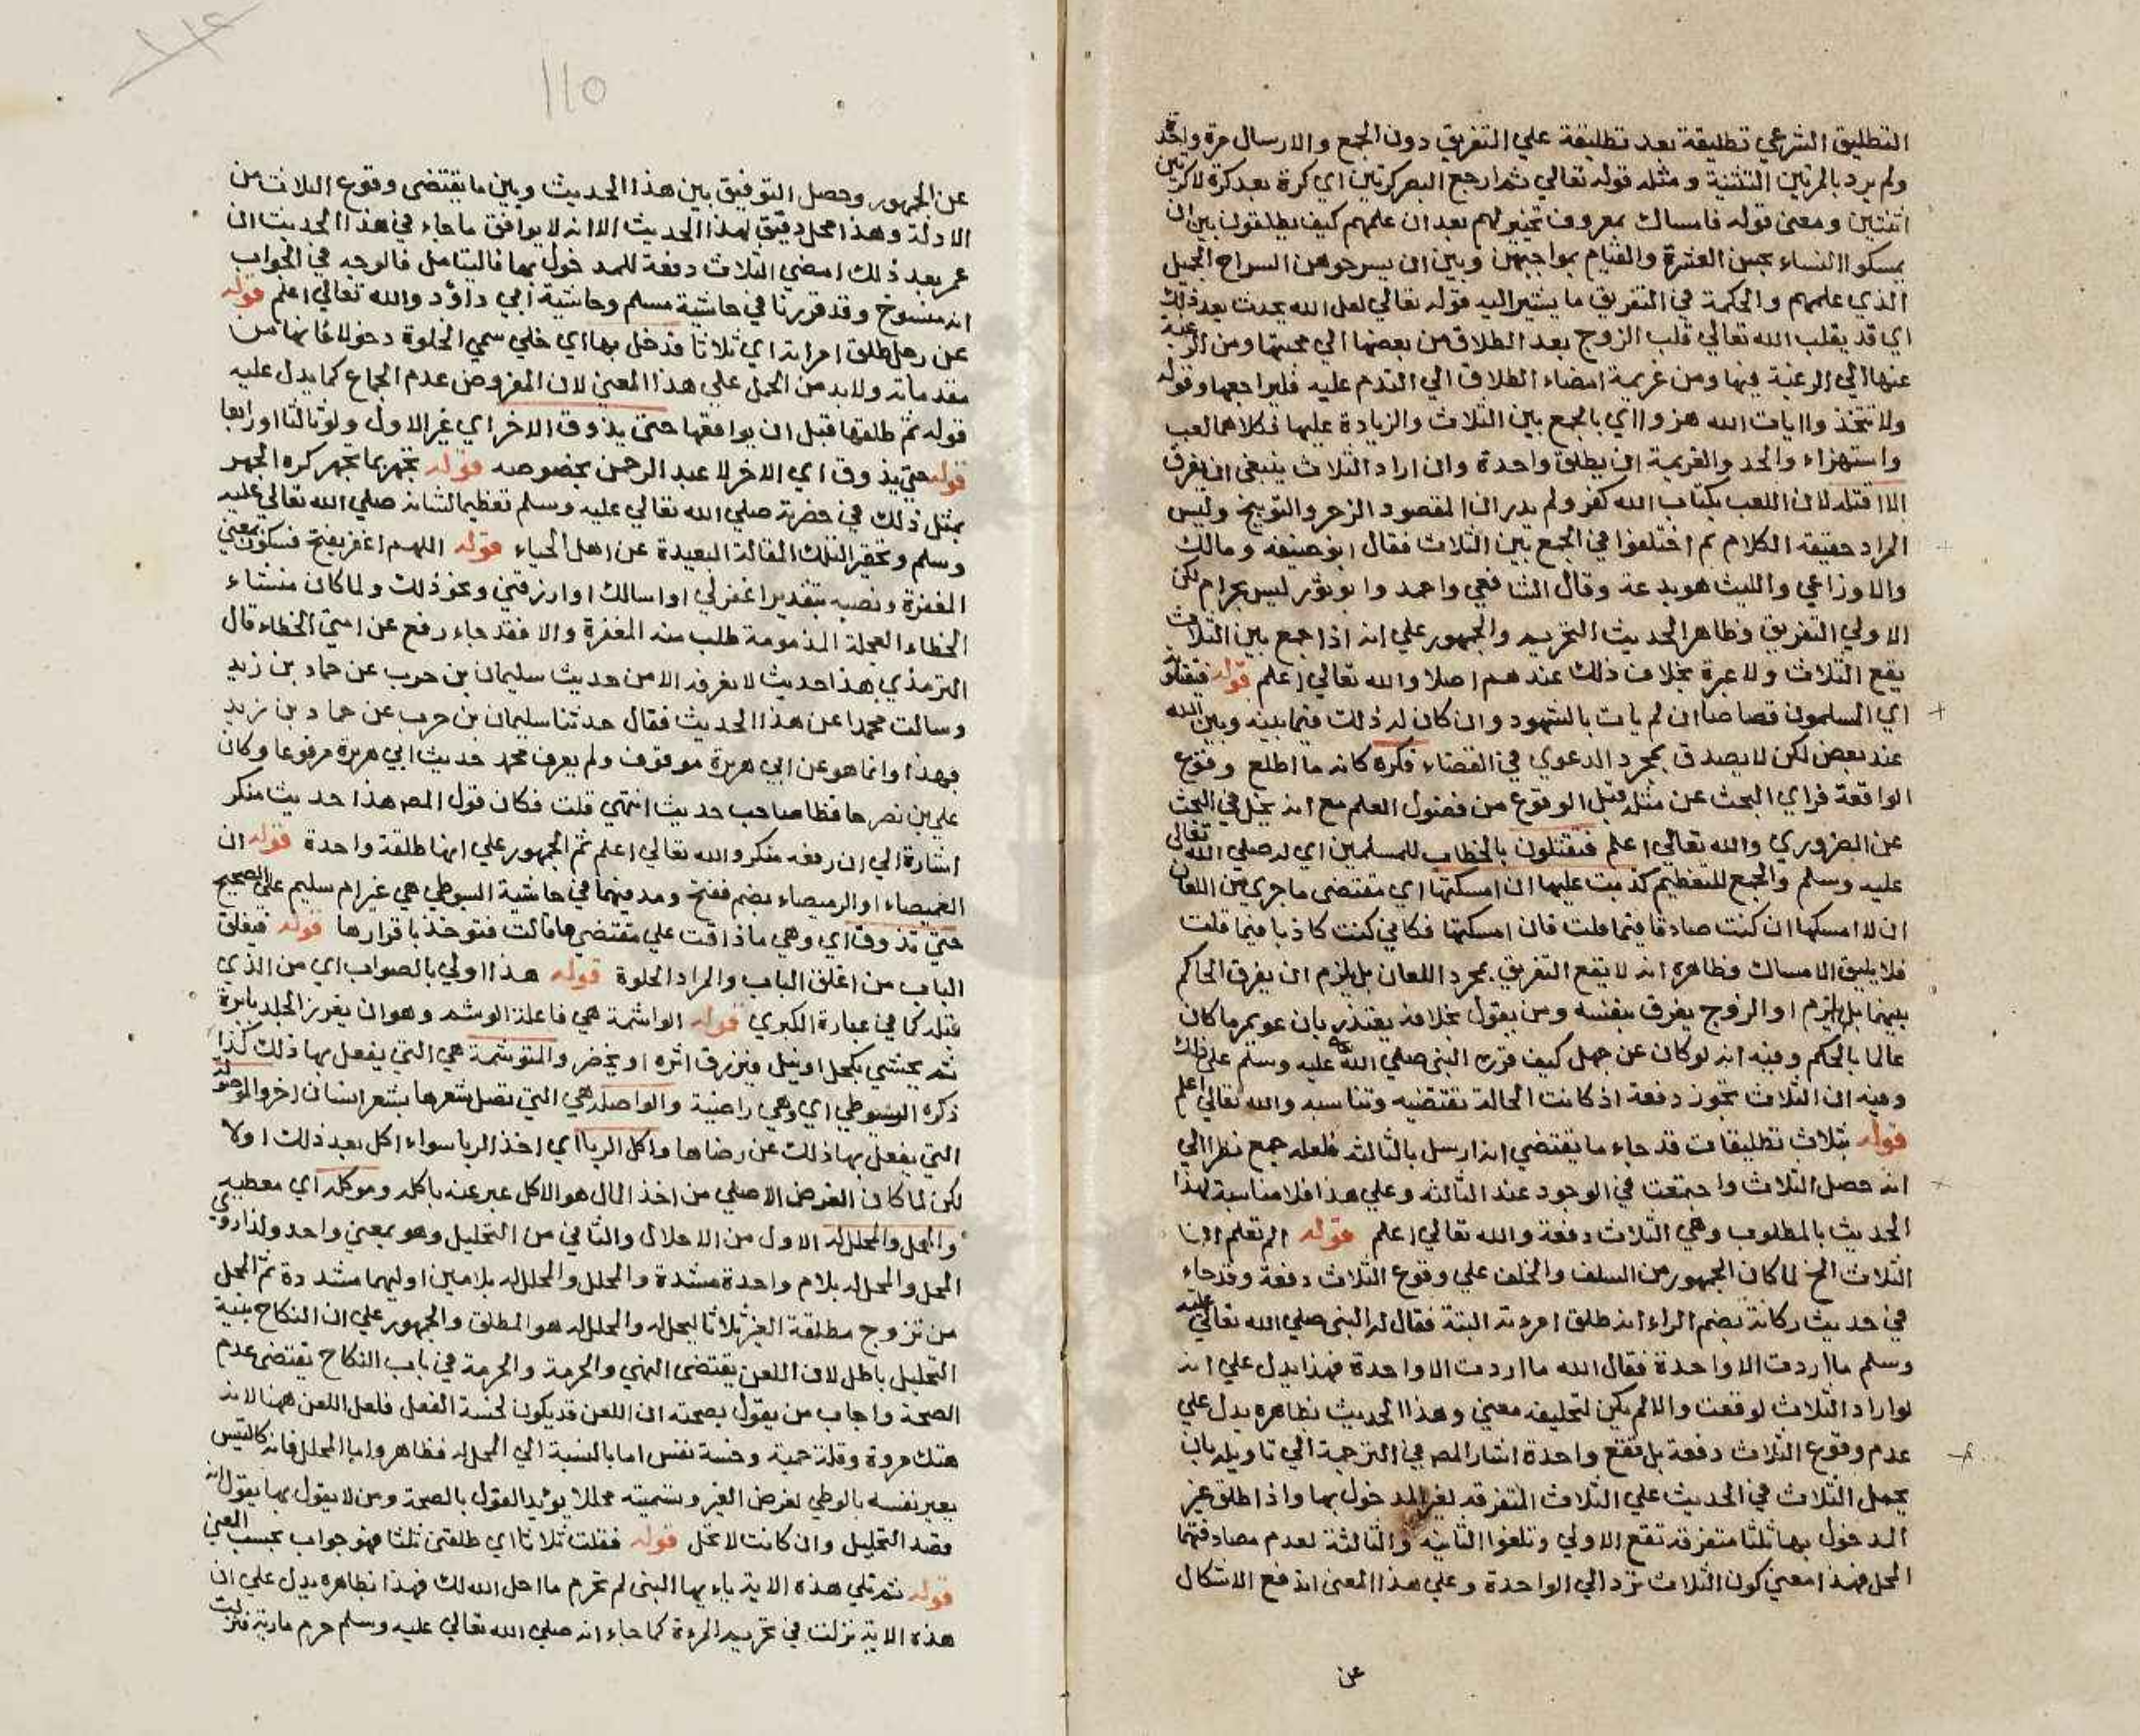 التطليق الشرعي تطليقة بعد تطليقة علي التفريق دون الجمع والارسال مرة واحدة
ولم يرد بالمرتين التثنية ومثله قوله تعالي ثم ارجع البصر كرتين اي كرة بعد كرة لا كرتين
اثنتين ومعني قوله فامساك بمعروف تخيير لهم بعد ان علمهم كيف يطلقون بين ان
يمسكوا النساء بحسن العشرة والقيام بواجبهن وبين ان يسرحوهن السراح الجميل
الذي علمهم والحكمة في التفريق ما يشير اليه قوله تعالي لعل الله يحدث بعد ذلك
اي قد يقلب الله تعالي قلب الزوج بعد الطلاق من بعضها الي محبتها ومن الرغبة
عنها الي الرغبة فيها ومن عزيمة امضاء الطلاق الي الندم عليه فليراجعها وقوله
ولا تتخذوا ايات الله هزوا اي بالجمع بين الثلاث والزيادة عليها فكلاهما لعب
واستهزاء والجد والعزيمة ان يطلق واحدة وان اراد الثلاث ينبغي ان يفرق
الا اقتله لان اللعب بكتاب الله كفر ولم يدر ان المقصود الزجر والتوبيخ وليس
المراد حقيقة الكلام ثم اختلفوا في الجمع بين الثلاث فقال ابو حنيفه ومالك
والاوزاعي والليث هو بدعة وقال الشافعي واحمد وابو ثور ليس بحرام لكن
الاولي التفريق وظاهر الحديث التحريم والجمهور علي انه اذا جمع بين الثلاث
يقع الثلاث ولا عبرة بخلاف ذلك عندهم اصلا والله تعالي اعلم قوله فيقتلونه
اي المسلمون قصاصا ان لم يات بالشهود وان كان له ذلك فيما بينه وبين الله
عند بعض لكن لا يصدق بمجرد الدعوي في القضاء فكره كانه ما اطلع وقوع
الواقعة فراي البحث عن مثله قبل الوقوع من فضول العلم مع انه يخل في البحث
عن الضروري والله تعالي اعلم فتقتلون بالخطاب للمسلمين اي له صلي الله تعالي
عليه وسلم والجمع للتعظيم كذبت عليها ان امسكتها اي مقتضي ما جري من اللعان
ان لا امسكها ان كنت صادقا فيما قلت فان امسكتها فكاني كنت كاذبا فيما قلت
فلا يليق الامساك وظاهره انه لا يقع التفريق بمجرد اللعان بل يلزم ان يفرق الحاكم
بينهما بل يلزم او الزوج يفرق بنفسه ومن يقول بخلافه يعتذر بان عويمر ما كان
عالما بالحكم وفيه انه لو كان عن جهل كيف قرره النبي صلي الله عليه وسلم علي ذلك
وفيه ان الثلاث تجوز دفعة اذ كانت الحالة تقتضيه وتناسبه والله تعالي اعلم
قوله بثلاث تطليقات قد جاء ما يقتضي انه ارسل بالثالثه فلعله جمع نظرا الي
انه حصل الثلاث واجتمعت في الوجود عند الثالثه وعلي هذا فلا مناسبة لهذا
الحديث بالمطلوب وهي الثلاث دفعة والله تعالي اعلم قوله الم تعلم ان
الثلاث الخ لما كان الجمهور من السلف والخلف علي وقوع الثلاث دفعة وقد جاء
في حديث ركانة بضم الراء انه طلق امرءته البتة فقال له النبي صلي الله تعالي عليه
وسلم ما اردت الا واحدة فقال الله ما اردت الا واحدة فهذا يدل علي انه
لو اراد الثلاث لوقعت والا لم يكن لتحليفه معني وهذا الحديث بظاهره يدل علي
عدم وقوع الثلاث دفعة بل تقع واحدة اشار المص في الترجمة الي تاويله بان
يحمل الثلاث في الحديث علي الثلاث المتفرقه لغير المدخول بها واذا طلق غير
المدخول بها ثلثا متفرقه تقع الاولي وتلغوا الثانيه والثالثة لعدم مصادفتهما
المحل فهذا معني كون الثلاث ترد الي الواحدة وعلي هذا المعني اندفع الاشكال
عن
١١٥
عن الجمهور وحصل التوفيق بين هذا الحديث وبين ما يقتضي وقوع الثلاث من
الادلة وهذا محل دقيق لهذا الحديث الا انه لا يوافق ما جاء في هذا الحديث ان
عمر بعد ذلك امضي الثلاث دفعة للمدخول بها فاليتامل فالوجه في الجواب
انه منسوخ وقد قررنا في حاشية مسلم وحاشية ابي داؤد والله تعالي اعلم قوله
عن رجل طلق امراته اي ثلاثا فدخل بها اي خلي سمي الخلوة دخولا فانها من
مقدماته ولا بد من الحمل علي هذا المعني لان المفروض عدم الجماع كما يدل عليه
قوله ثم طلقها قبل ان يواقعها حتي يذوق الاخر اي غير الاول ولو ثالثا او رابعا
قوله حتي يذوق اي الاخر لا عبد الرحمن بخصوصه قوله تجهر بما تجهر كره الجهر
بمثل ذلك في حضرته صلي الله تعالي عليه وسلم تعظيما لشانه صلي الله تعالي عليه
وسلم وتحقيرا لتلك المقالة البعيدة عن اهل الحياء قوله اللهم اغفر بفتح فسكون بمعني
المغفرة ونصبه بتقدير اغفر لي او اسالك او ارزقني ونحو ذلك ولما كان منشاء
الخطاء العجلة المذمومة طلب منه المغفرة والا فقد جاء رفع عن امتي الخطاء قال
الترمذي هذا حديث لا نعرفه الا من حديث سليمان بن حرب عن حماد بن زيد
وسالت محمدا عن هذا الحديث فقال حدثنا سليمان بن حرب عن حماد بن زيد
فهذا وانما هو عن ابي هريرة موقوف ولم يعرف محمد حديث ابي هريرة مرفوعا وكان
علي بن نصر حافظا صاحب حديث انتهي قلت فكان قول المص هذا حديث منكر
اشارة الي ان رفعه منكر والله تعالي اعلم ثم الجمهور علي انها طلقة واحدة قوله ان
الغميصاء او الرميصاء بضم ففتح ومد فيهما في حاشية السيوطي هي غير ام سليم علي الصحيح
حتي تذوق اي وهي ما ذاقت علي مقتضي ما قالت فتوخذ باقرارها قوله فيغلق
الباب من اغلق الباب والمراد الخلوة قوله هذا اولي بالصواب اي من الذي
قبله كما في عبارة الكبري قوله الواشمة هي فاعلة الوشم وهو ان يغرز الجلد بابرة
ثم يحشي بكحل او نيل فيزرق اثره او يخضر والمتوشمة هي التي يفعل بها ذلك كذا
ذكره السيوطي اي وهي راضية والواصله هي التي تصل شعرها بشعر انسان اخر والموصولة
التي يفعل بها ذلك عن رضاها واكل الربا اي اخذ الربا سواء اكل بعد ذلك اولا
لكن لما كان الغرض الاصلي من اخذ المال هو الاكل عبر عنه باكله وموكله اي معطيه
والمحل والمحلل له الاول من الاحلال والثاني من التحليل وهو بمعني واحد ولذا روي
المحل والمحل له بلام واحدة مشددة والمحلل والمحلل له بلامين اولهما مشددة ثم المحل
من تزوج مطلقة الغير ثلاثا ليحل له والمحلل له هو المطلق والجمهور علي ان النكاح بنية
التحليل باطل لان اللعن يقتضي النهي والحرمة والحرمة في باب النكاح تقتضي عدم
الصحة واجاب من يقول بصحته ان اللعن قد يكون لخسة الفعل فلعل اللعن ههنا لانه
هتك مروة وقلة حمية وخسة نفس اما بالنسبة الي المحلل له فظاهر واما المحلل فانه كالتيس
يعير نفسه بالوطي لغرض الغير وتسميته محللا يؤيد القول بالصحة ومن لا يقول بها يقول انه
قصد التحليل وان كانت لا تحل قوله فقلت ثلاثا اي طلقتي ثلثا فهو جواب بحسب المعني
قوله ثم تلي هذه الاية ياء يها النبي لم تحرم ما احل الله لك فهذا بظاهره يدل علي ان
هذه الاية نزلت في تحريم المرءة كما جاء انه صلي الله تعالي عليه وسلم حرم مارية فنزلت